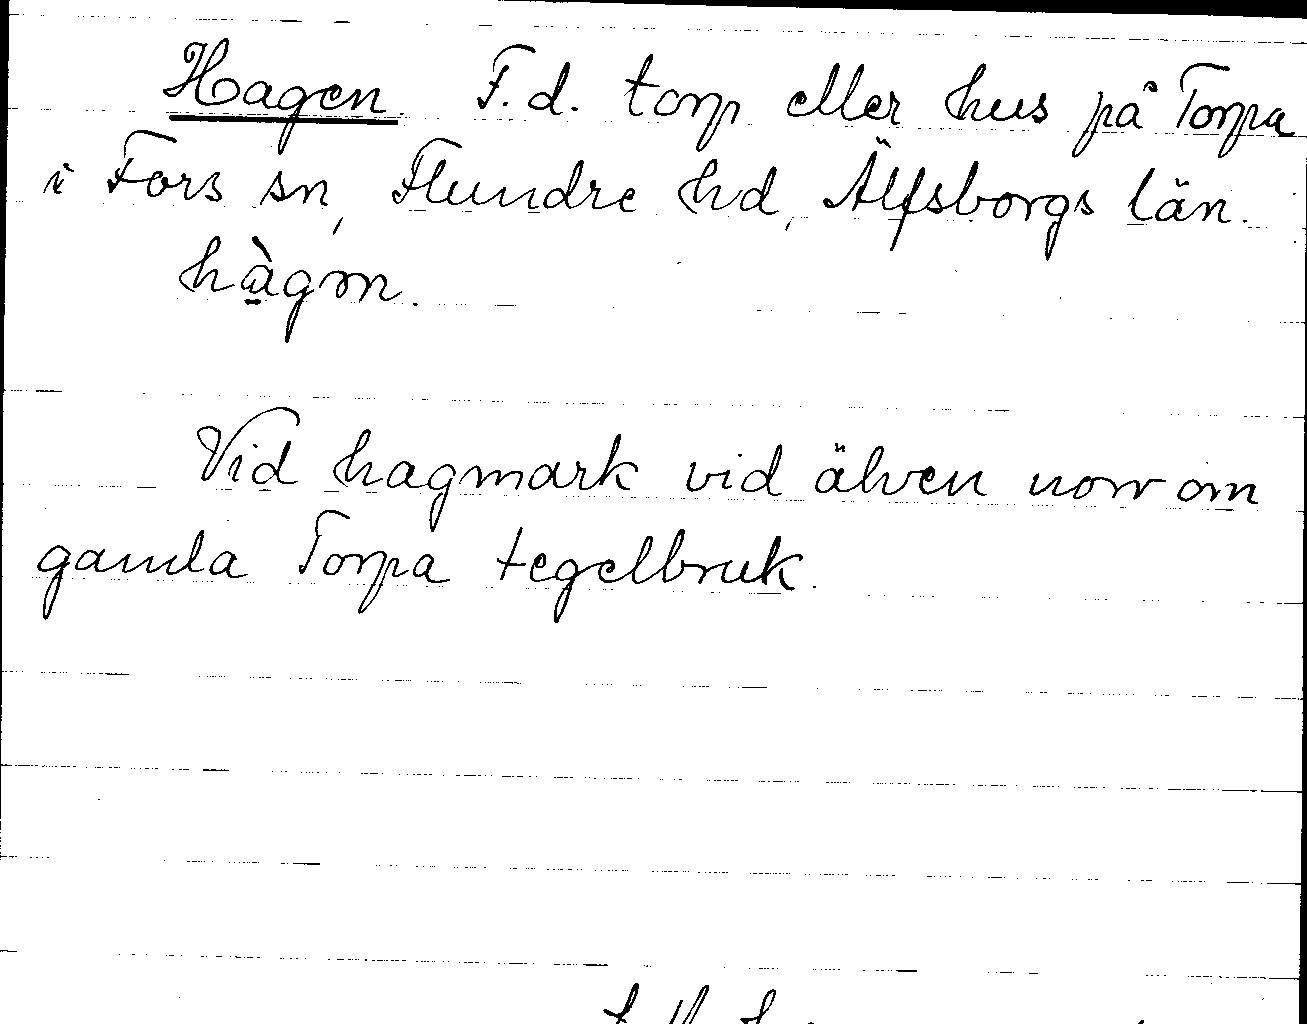 Hagen F.d. torp eller hus på Torpa
i Fors sn, Flundre hd, Älfsborgs län.
hà̱gɷn.
Vid hagmark vid älven norr om
gamla Torpa tegelbruk.